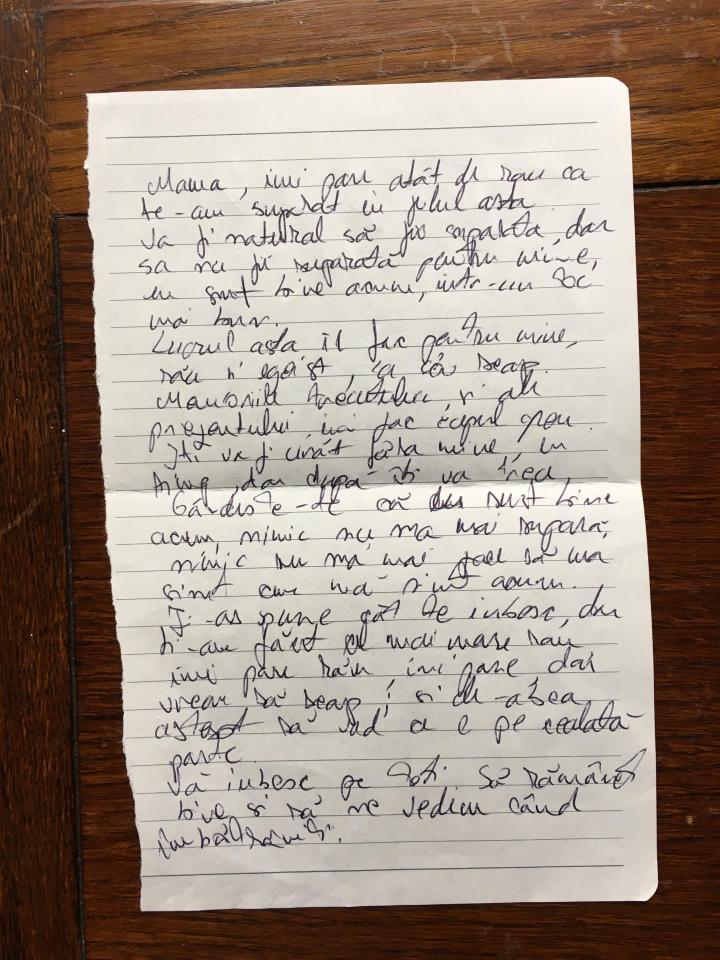 Mama, imi pare atât de rau ca
te-am suparat in felul asta
Va fi natural să fii suparata, dar
sa nu fii suparată pentru mine,
eu sunt bine acum, intr-un loc
mai bun.
Lucrul asta il fac pentru mine,
său si egoist, ca să scap.
Memoriile trecutului, si ale
prezentului imi fac capul greu.
Iti va fi urât fără mine, un
timp, dar după iti va trece,
Gândeste-te că eu sunt bine
acum, nimic nu ma mai supară,
nimic nu mă mai face să ma
simt cum mă simt acum.
Ti-as spune cât te iubesc, dar
ti-am făcut cel mai mare rau
imi pare rău, imi pare, dar
vreau să scap, si de-abea
astept să văd ce e pe cealaltă
parte.
Vă iubesc pe toti. Să rămâneti
bine si să ne vedem când
îmbătrâniti.